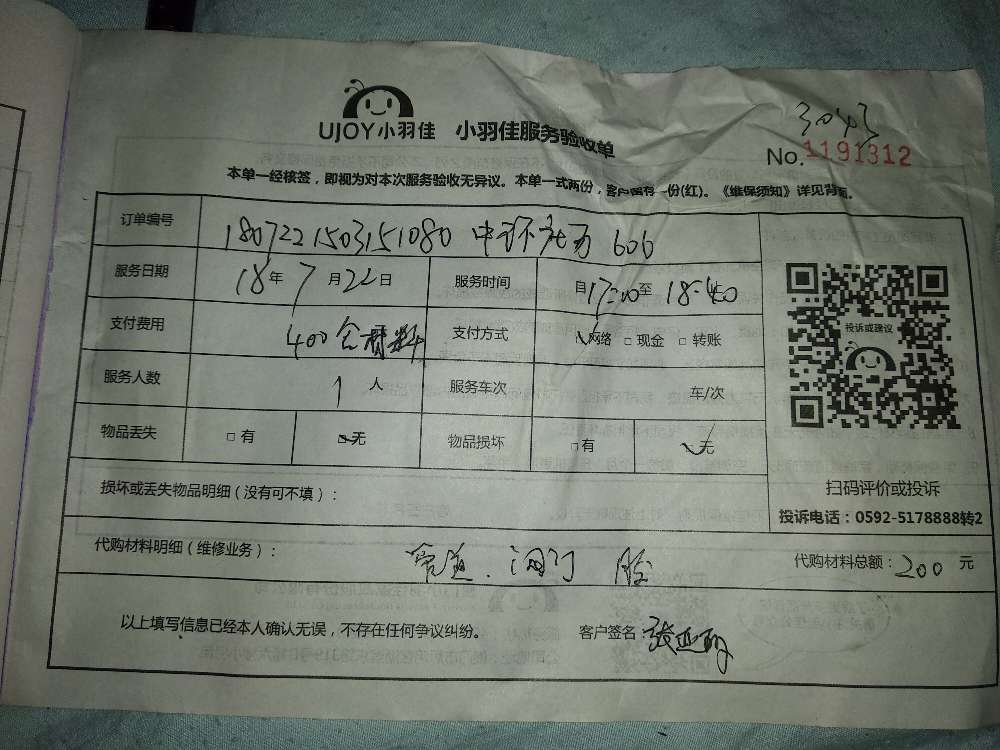 3043
UJOY小羽佳 小羽佳服务验收单
No.1191312
本单一经核签，即视为对本次服务验收无异议。本单一式两份，客户留存一份(红)。《维保须知》详见背面。
订单编号 1807221503151080 606
服务日期 18年7月22日 服务时间 自17:00至18:40
支付费用 400含材料 支付方式 网络 □现金 □转账
服务人数 1人 服务车次 车/次
物品丢失 □有 □无 物品损坏 □有 无
投诉或建议
扫码评价或投诉
损坏或丢失物品明细（没有可不填）：
投诉电话：0592-5178888转2
代购材料明细（维修业务）： 管道 代购材料总额：200 元
以上填写信息已经本人确认无误，不存在任何争议纠纷。 客户签名：